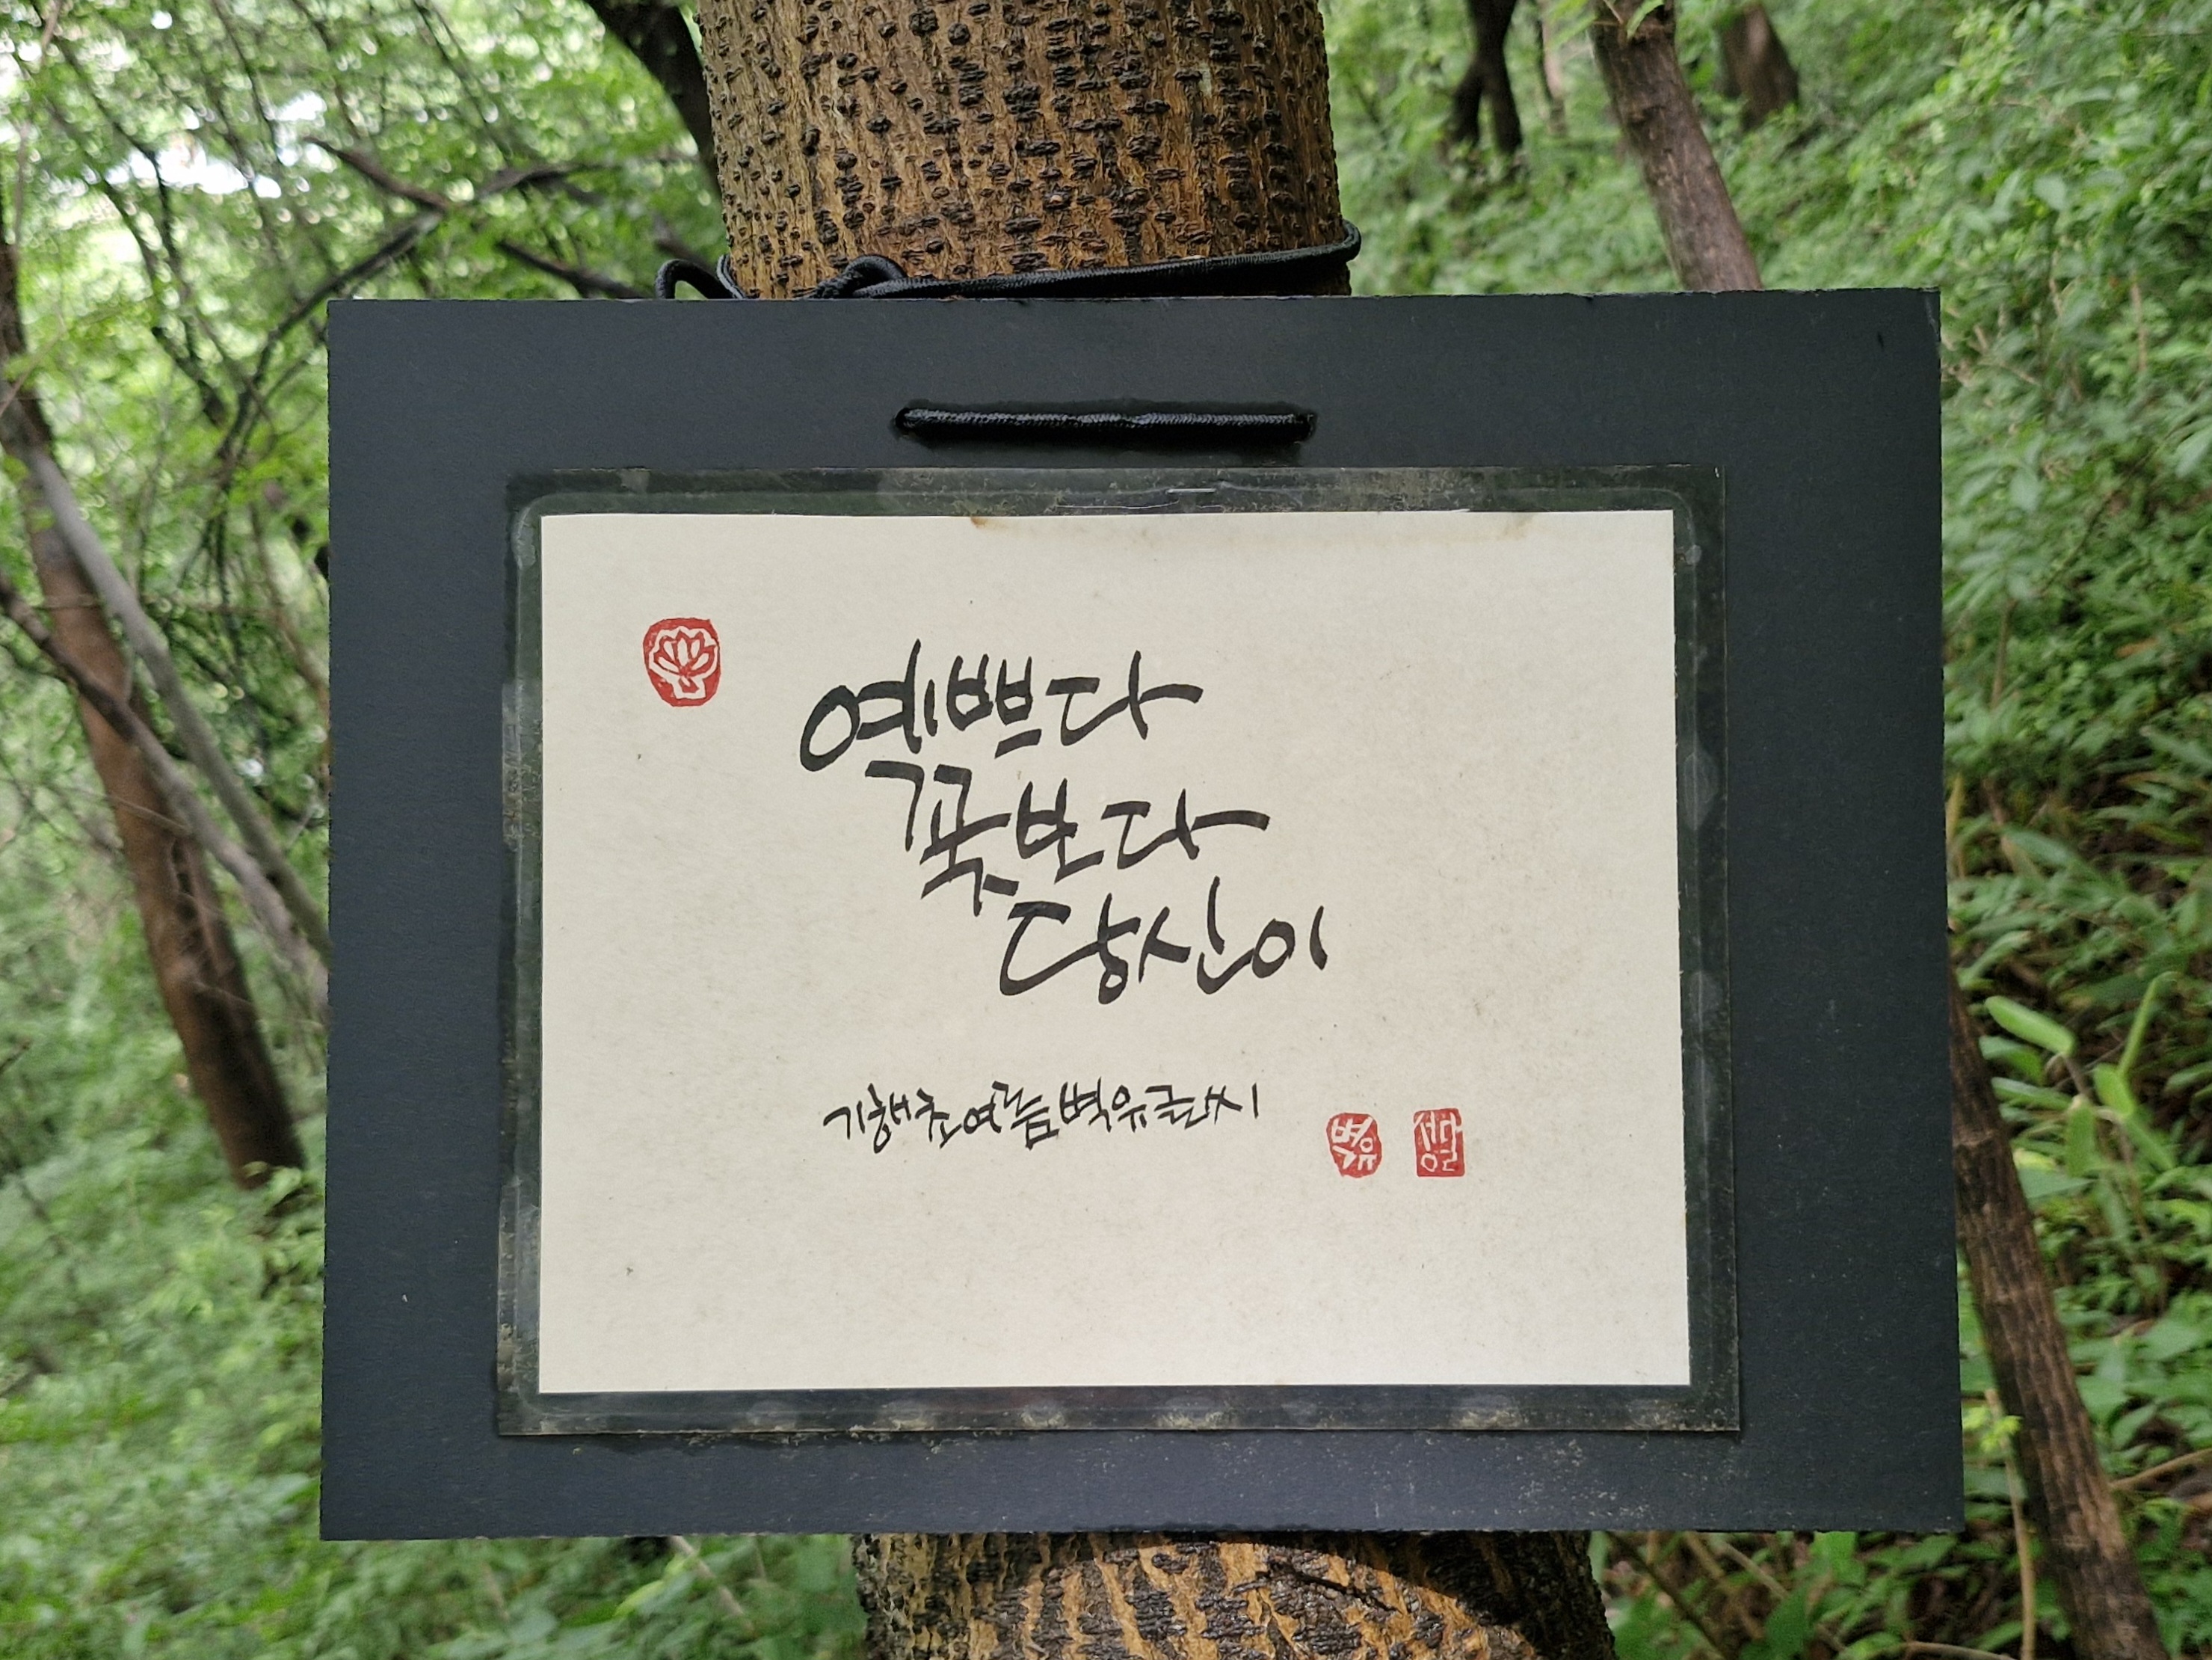 예쁘다
꽃보다
당신이
기해초여름벽유글씨
벽유